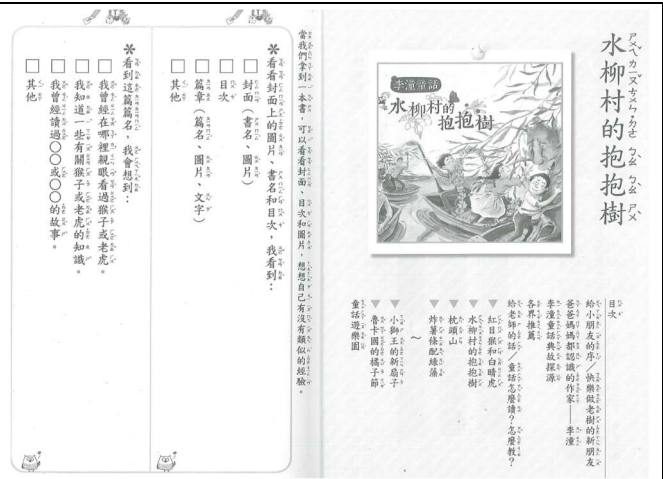 水柳村的抱抱樹
李潼童話
水柳村的
抱抱樹
目次
給小朋友的序／快樂做老樹的新朋友
爸爸媽媽都認識的作家——李潼
李潼童話典故探源
各界推薦
給老師的話／童話怎麼讀？怎麼教？
▼紅目猴和白睛虎
▼水柳村的抱抱樹
▼枕頭山
▼炸薯條配綠藻
～
▼小獅王的新扇子
▼魯卡國的橘子節
童話遊樂園
當我們拿到一本書，可以看看封面、目次和圖片，想想自己有沒有類似的經驗。
＊看看封面上的圖片、書名和目次，我看到：
□封面（書名、圖片）
□目次
□篇章（篇名、圖片、文字）
□其他
＊看到這篇篇名，我會想到：
□我曾經在哪裡親眼看過猴子或老虎。
□我知道一些有關猴子或老虎的知識。
□我曾經讀過○○或○○的故事。
□其他